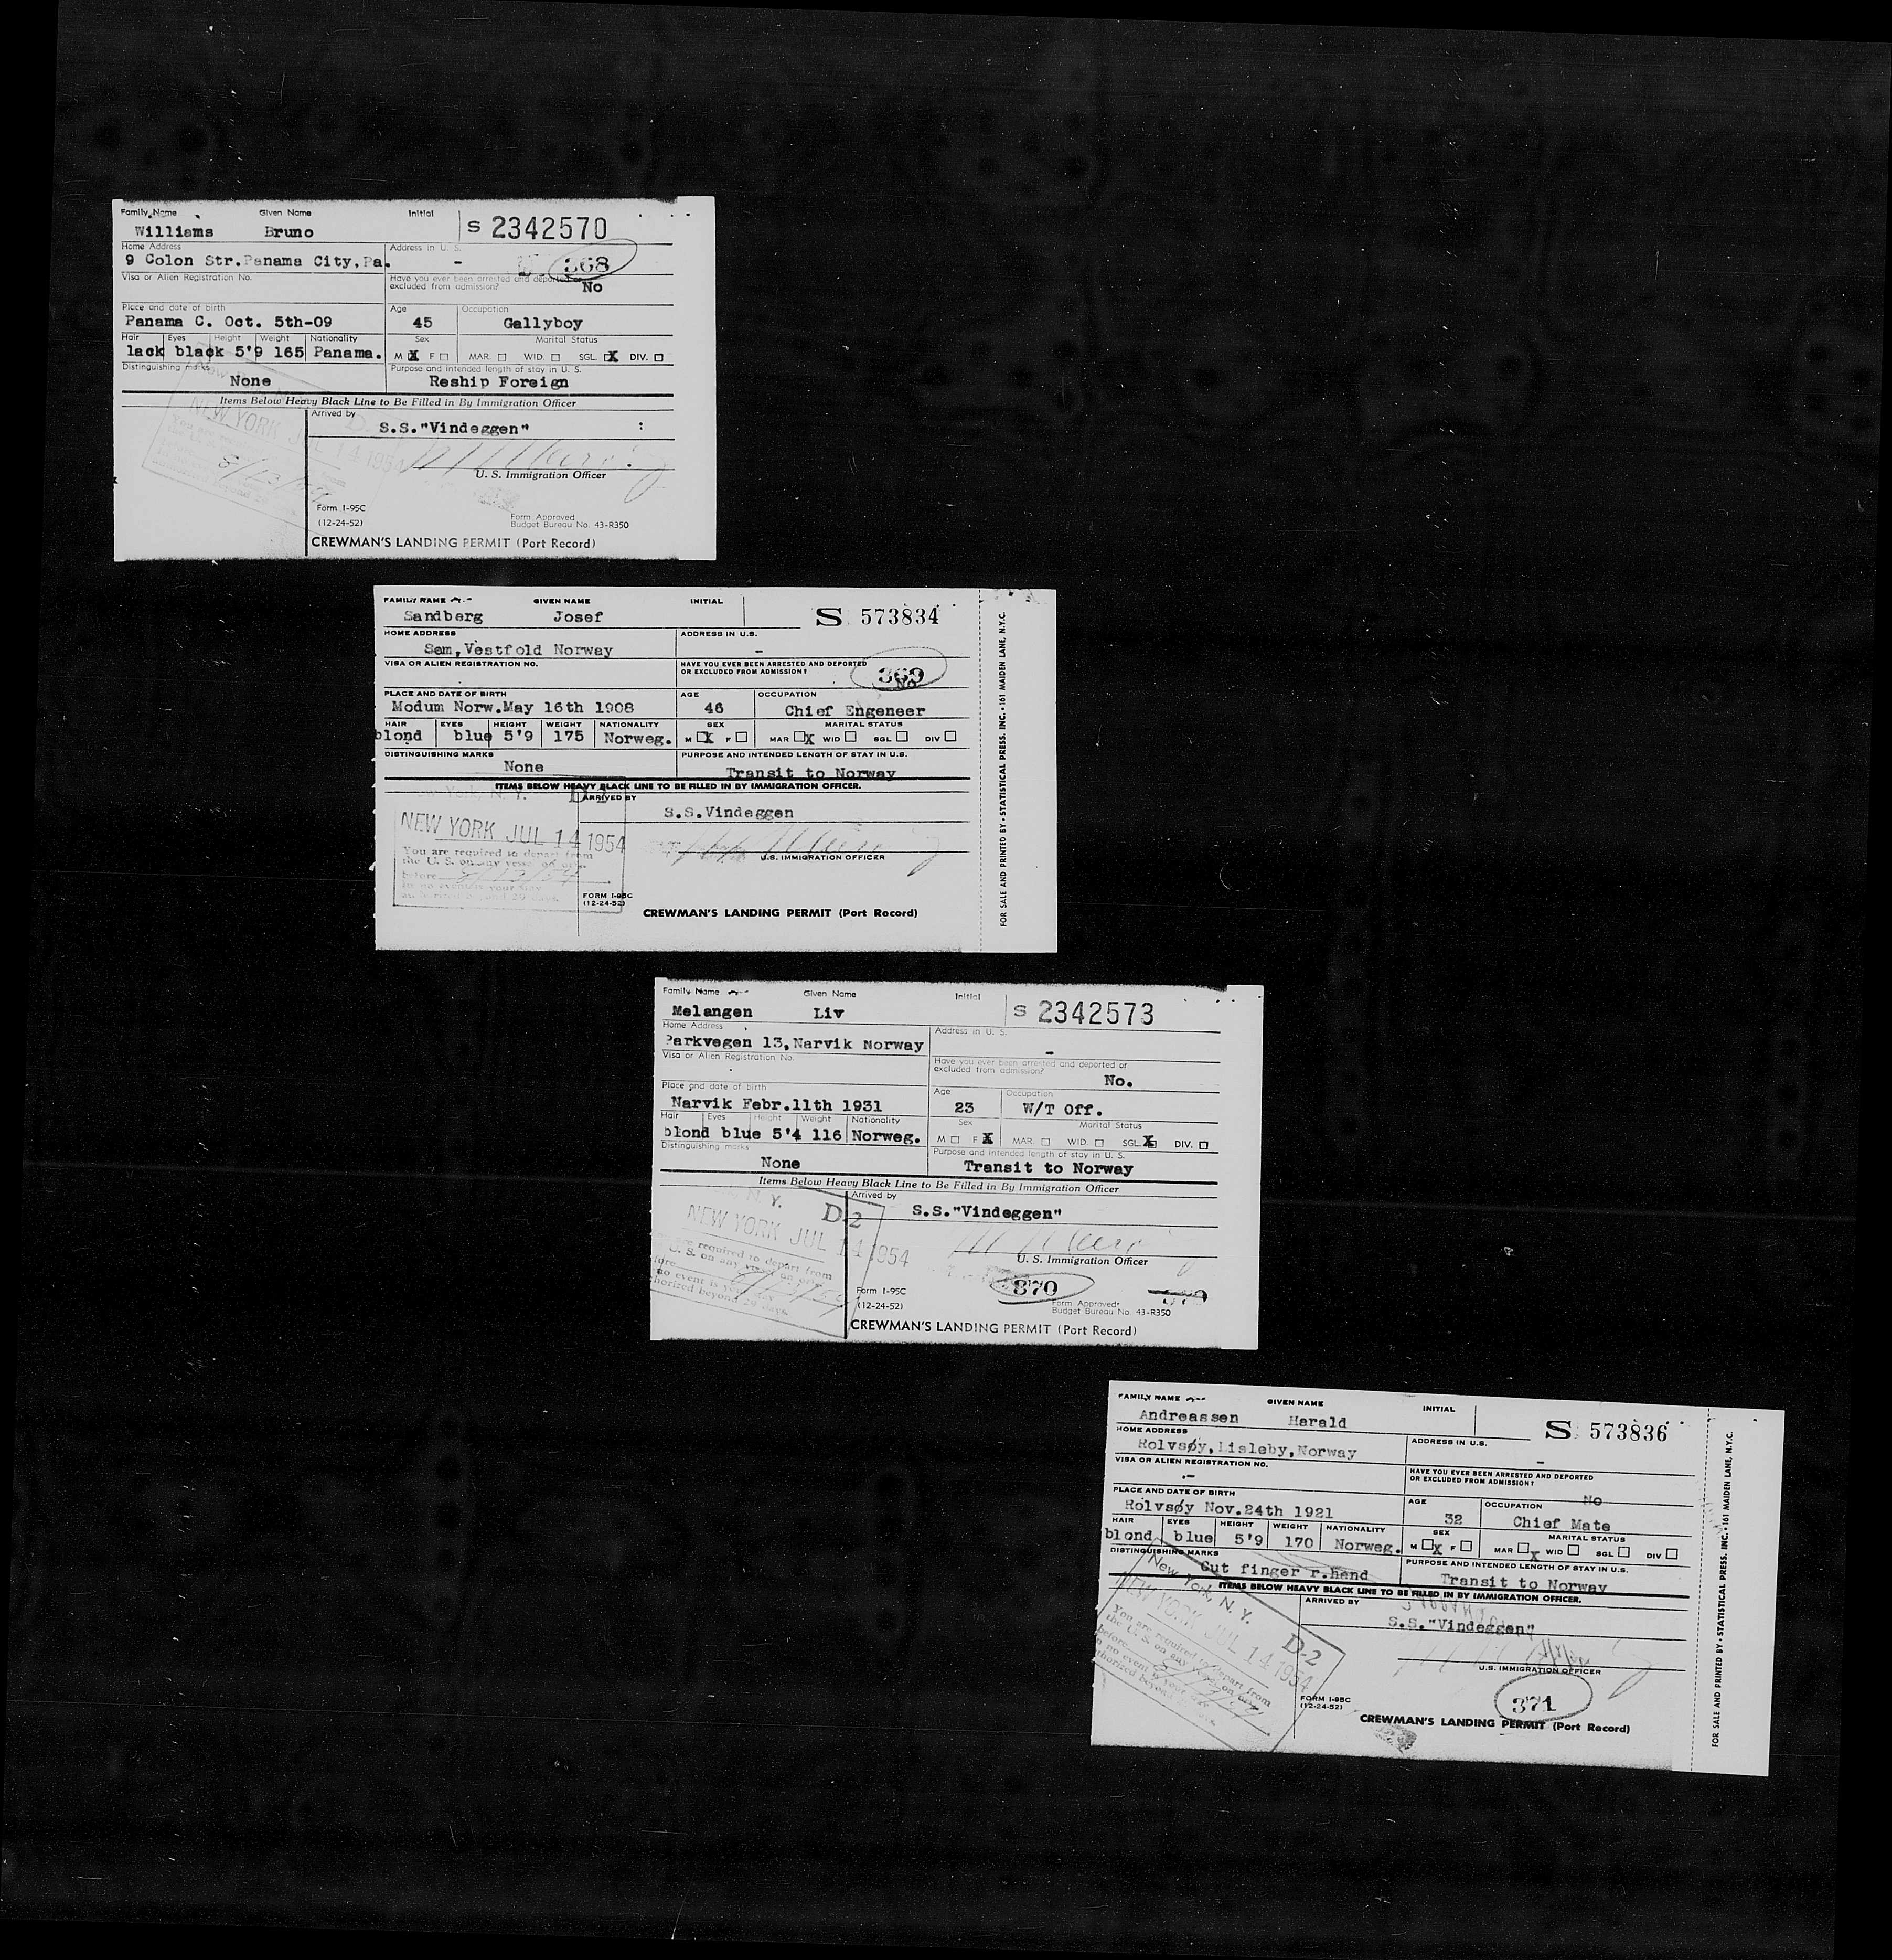 Family Name Given Name Initial
S 2342570
Williams Bruno
Home Address Address in U. S.
9 Colon Str.Panama City,Pa. -
368
Visa or Alien Registration No. Have you ever been arrested and deported or
excluded from admission?
No
Place and date of birth Age Occupation
Panama C. Oct. 5th-09 45 Gallyboy
Hair Eyes Height Weight Nationality Sex Marital Status
lack black 5'9 165 Panama. M X F MAR. WID. SGL. X DIV.
Distinguishing marks Purpose and intended length of stay in U. S.
None Reship Foreign
Items Below Heavy Black Line to Be Filled in By Immigration Officer
Arrived by
S.S."Vindeggen" :
NEW YORK JUL 14 1954
U. S. Immigration Officer
Form I-95C
(12-24-52)
Form Approved
Budget Bureau No. 43-R350
CREWMAN'S LANDING PERMIT (Port Record)
FAMILY NAME GIVEN NAME INITIAL
S 573834
Sandberg Josef
HOME ADDRESS ADDRESS IN U.S.
Sem,Vestfold Norway -
VISA OR ALIEN REGISTRATION NO. HAVE YOU EVER BEEN ARRESTED AND DEPORTED
OR EXCLUDED FROM ADMISSION?
369
No
PLACE AND DATE OF BIRTH AGE OCCUPATION
Modum Norw.May 16th 1908 46 Chief Engeneer
HAIR EYES HEIGHT WEIGHT NATIONALITY SEX MARITAL STATUS
blond blue 5'9 175 Norweg. M X F MAR X WID SGL DIV
DISTINGUISHING MARKS PURPOSE AND INTENDED LENGTH OF STAY IN U.S.
None Transit to Norway
ITEMS BELOW HEAVY BLACK LINE TO BE FILLED IN BY IMMIGRATION OFFICER.
York, N. Y. D-2
ARRIVED BY
S.S.Vindeggen
NEW YORK JUL 14 1954
You are required to depart from
the U. S. on any vessel on or
before 8/13/54
In no event is your stay
authorized beyond 29 days.
U.S. IMMIGRATION OFFICER
FORM I-95C
(12-24-52)
CREWMAN'S LANDING PERMIT (Port Record)
FOR SALE AND PRINTED BY • STATISTICAL PRESS. INC. • 161 MAIDEN LANE, N.Y.C.
Family Name Given Name Initial
S 2342573
Melangen Liv
Home Address Address in U. S.
Parkvegen 13,Narvik Norway -
Visa or Alien Registration No. Have you ever been arrested and deported or
excluded from admission?
No.
Place and date of birth Age Occupation
Narvik Febr.11th 1931 23 W/T Off.
Hair Eyes Height Weight Nationality Sex Marital Status
blond blue 5'4 116 Norweg. M F X MAR. WID. SGL. X DIV.
Distinguishing marks Purpose and intended length of stay in U. S.
None Transit to Norway
Items Below Heavy Black Line to Be Filled in By Immigration Officer
N. Y. D-2
Arrived by
S.S."Vindeggen"
NEW YORK JUL 14 1954
required to depart from
U. S. on any vessel on or
no event is your stay
beyond 29 days.
U. S. Immigration Officer
370
Form I-95C
(12-24-52)
Form Approved
Budget Bureau No. 43-R350
CREWMAN'S LANDING PERMIT (Port Record)
FAMILY NAME GIVEN NAME INITIAL
S 573836
Andreassen Harald
HOME ADDRESS ADDRESS IN U.S.
Rolvsøy,Lisleby,Norway -
VISA OR ALIEN REGISTRATION NO. HAVE YOU EVER BEEN ARRESTED AND DEPORTED
OR EXCLUDED FROM ADMISSION?
.-
No
PLACE AND DATE OF BIRTH AGE OCCUPATION
Rolvsøy Nov.24th 1921 32 Chief Mate
HAIR EYES HEIGHT WEIGHT NATIONALITY SEX MARITAL STATUS
blond blue 5'9 170 Norweg. M X F MAR X WID SGL DIV
DISTINGUISHING MARKS PURPOSE AND INTENDED LENGTH OF STAY IN U.S.
Cut finger r.hand Transit to Norway
ITEMS BELOW HEAVY BLACK LINE TO BE FILLED IN BY IMMIGRATION OFFICER.
New York, N. Y. D-2
ARRIVED BY
S.S."Vindeggen"
NEW YORK JUL 14 1954
You are required to depart from
the U. S. on any vessel on or
before
no event is your stay
authorized beyond
U.S. IMMIGRATION OFFICER
371
FORM I-95C
(12-24-52)
CREWMAN'S LANDING PERMIT (Port Record)
FOR SALE AND PRINTED BY • STATISTICAL PRESS. INC. • 161 MAIDEN LANE, N.Y.C.